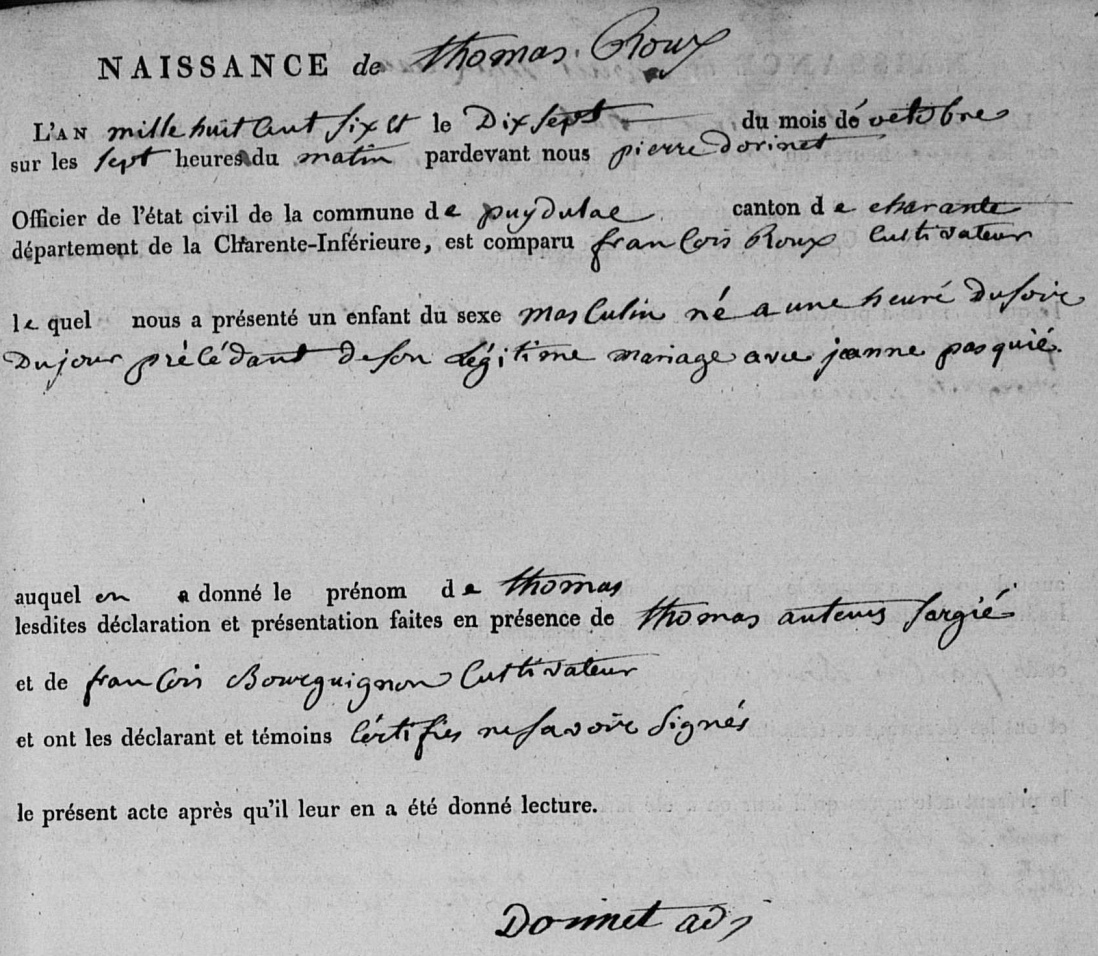 NAISSANCE de thomas Roux
L'AN mille huit Cent Six et le Dix Sept du mois dé octobre
sur les sept heures du matin pardevant nous pierre Dorinet
Officier de l'état civil de la commune de puydulac canton de charante
département de la Charente-Inférieure, est comparu franCois Roux Cultivateur
le quel nous a présenté un enfant du sexe masCulin né a une heuré Du Soir
Du jour précédant de Son Légitime mariage avec jeanne pasquié.
auquel en a donné le prénom de thomas
lesdites déclaration et présentation faites en présence de thomas
et de franCois Bourguignon Cultivateur
et ont les déclarant et témoins Cértifiés ne Savoir Signés
le présent acte après qu'il leur en a été donné lecture.
Dorinet adj